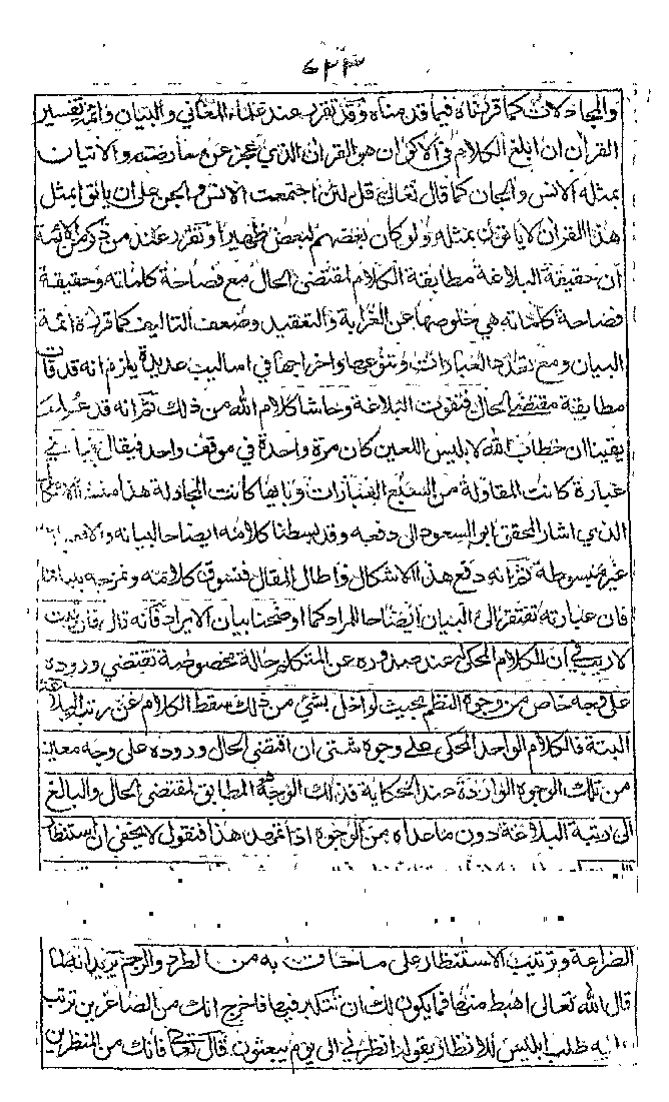 ٤٢٣
والمجادلات كما قررناه فيما قدمناه وقد تقرر عند علماء المعاني والبيان وائمة تفسير
القرآن ان ابلغ الكلام في الاكوان هو القرآن الذي عجز عن معارضته والاتيان
بمثله الانس والجان كما قال تعالى قل لئن اجتمعت الانس والجن على ان ياتوا بمثل
هذا القرآن لا ياتون بمثله ولو كان بعضهم لبعض ظهيرا وتقرر عند من ذكر من الائمة
ان حقيقة البلاغة مطابقة الكلام لمقتضى الحال مع فصاحة كلماته وحقيقة
فصاحة كلماته هي خلوصها عن الغرابة والتعقيد وضعف التاليف كما قرره ائمة
البيان ومع تعدد العبارات وتنوعها واخراجها في اساليب عديدة يلزم انه قد فات
مطابقة مقتضى الحال فتفوت البلاغة وحاشا كلام الله من ذلك ثم انه قد علم
يقينا ان خطاب الله لابليس اللعين كان مرة واحدة في موقف واحد فيقال
عبارة كانت المقاولة من السبع العبارات وبايها كانت المجادلة هذا منشأ الاشكال
الذي اشار المحقق ابو السعود الى دفعه وقد بسطنا كلامه ايضاحا لبيانه والا
غير مبسوطة ثم انه دفع هذا الاشكال واطال المقال فنسوق كلامه ونمزجه ببياننا
فان عبارته تفتقر الى التبيان ايضاحا للمراد كما اوضحنا بيان الايراد فانه قال فان قلت
لاريب في ان للكلام المحكي عند صدوره عن المتكلم حالة مخصوصة تقتضي وروده
على وجه خاص من وجوه النظم بحيث لو اخل بشي من ذلك سقط الكلام عن رتبة البلاغة
البتة فالكلام الواحد المحكي على وجوه شتى ان اقتضى الحال وروده على وجه معين
من تلك الوجوه الواردة عند الحكاية فذلك الوجه هو المطابق لمقتضى الحال والبالغ
الى رتبة البلاغة دون ما عداه من الوجوه اذا تمهد هذا فنقول لا يخفى ان استنظار
الضراعة وترتيب الاستنظار على ما حاق به من الطرد والرجم يريد انه لما
قال الله تعالى اهبط منها فما يكون لك ان تتكبر فيها فاخرج انك من الصاغرين ترتب
عليه طلب ابليس للانظار بقوله انظرني الى يوم يبعثون قال تعالى فانك من المنظرين